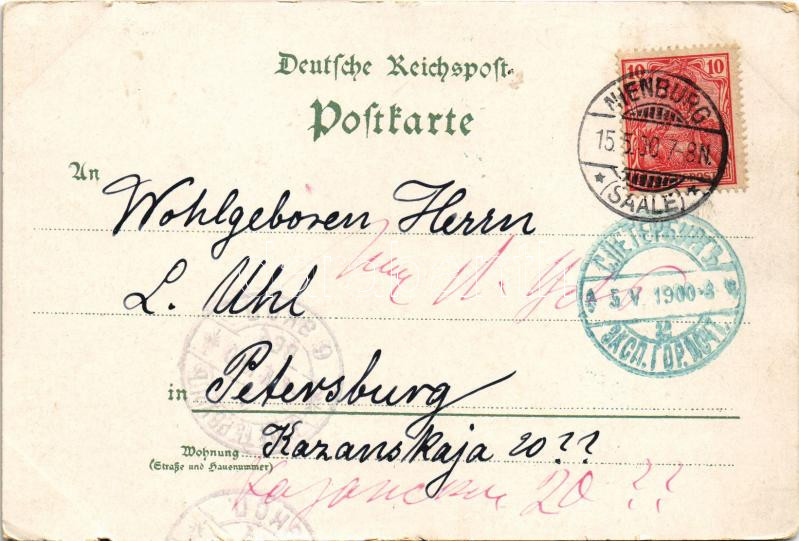 Deutsche Reichspost
Postkarte
10 10
NIENBURG
15.5.00.7-8N.
* (SAALE) *
An
Wohlgeboren Herrn
L. Uhl
С.ПЕТЕРБУРГЪ
5 V. 1900-8
ЭКСП.ГОР.ПОЧТ.
in Petersburg
Wohnung
(Straße und Hausnummer)
Kazanskaja 20 ??
20 ??